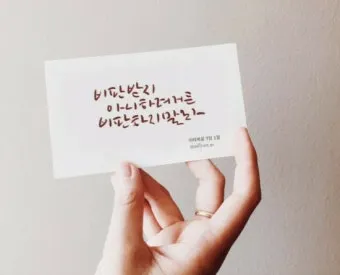 비판받지
아니하려거든
비판하지말라
마태복음 7장 1절